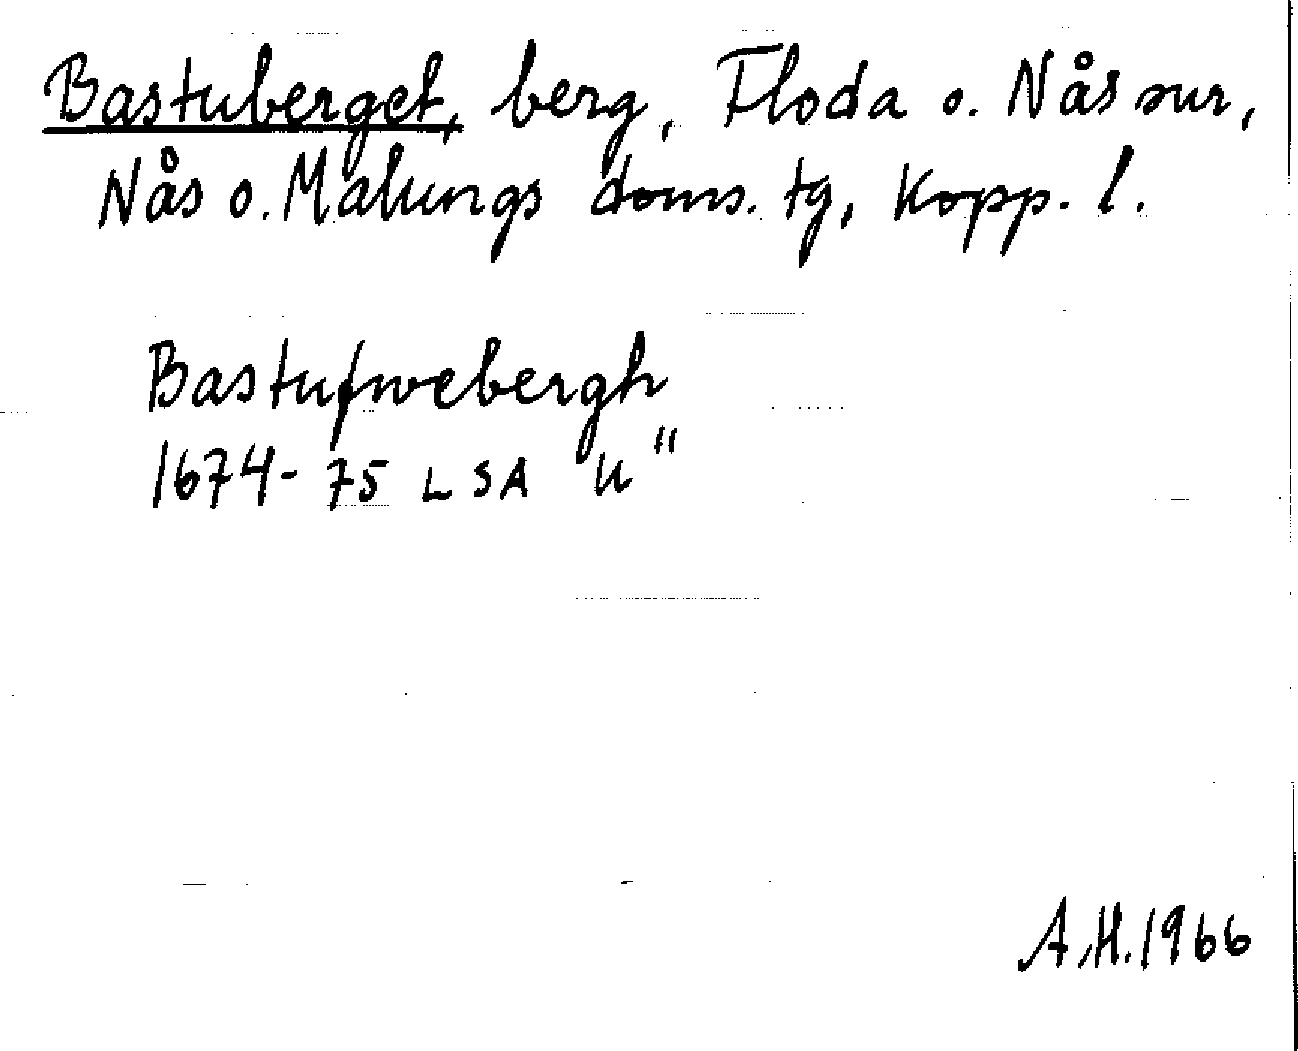 Bastuberget, berg, Floda o. Nås snr,
Nås o. Malungs doms. tg, Kopp. l.
Bastufwebergh
1674-75 LSA U"
A.H. 1966